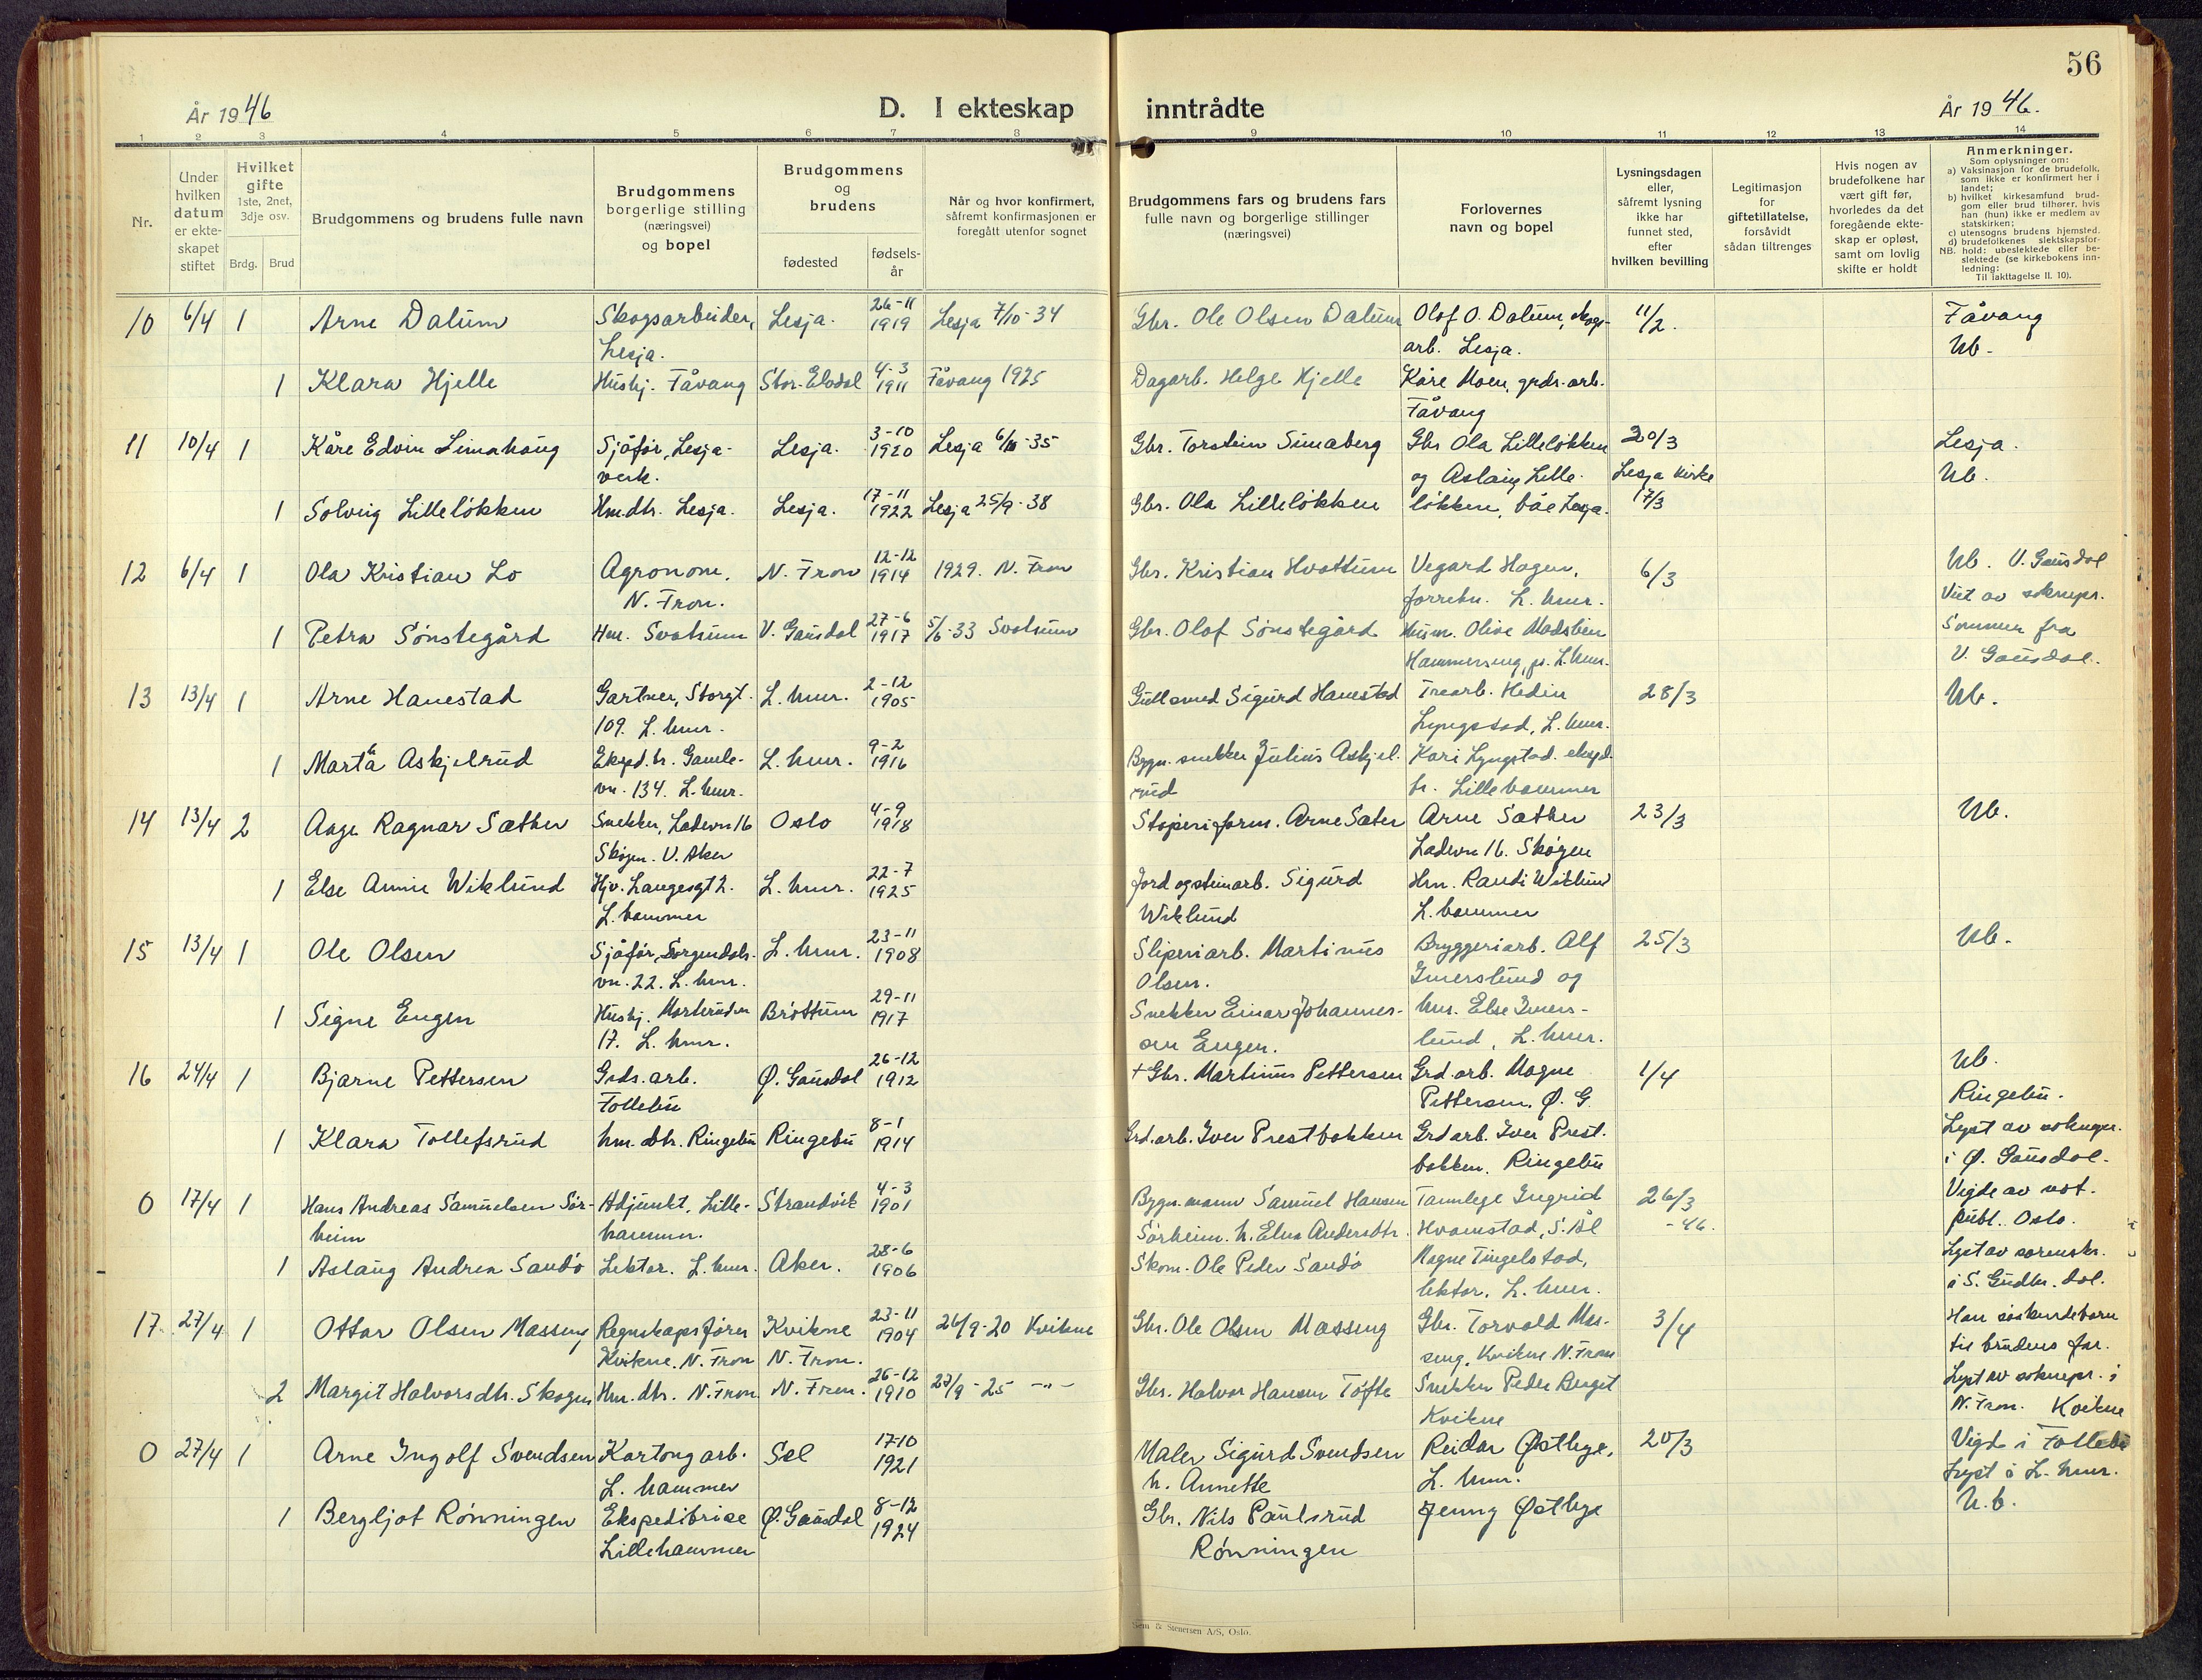 56
År 1946
D. I ekteskap inntrådte
År 1946.
1 2 3 4 5 6 7 8 9 10 11 12 13 14
Nr.
Under hvilken datum er ekteskapet stiftet
Hvilket gifte 1ste, 2net, 3dje osv.
Brdg. Brud
Brudgommens og brudens fulle navn
Brudgommens borgerlige stilling (næringsvei) og bopel
Brudgommens og brudens
fødested
fødsels-år
Når og hvor konfirmert, såfremt konfirmasjonen er foregått utenfor sognet
Brudgommens fars og brudens fars fulle navn og borgerlige stillinger (næringsvei)
Forlovernes navn og bopel
Lysningsdagen eller, såfremt lysning ikke har funnet sted, efter hvilken bevilling
Legitimasjon for giftetillatelse, forsåvidt sådan tiltrenges
Hvis nogen av brudefolkene har vært gift før, hvorledes da det foregående ekteskap er opløst, samt om lovlig skifte er holdt
Anmerkninger.
Som oplysninger om:
a) Vaksinasjon for de brudefolk, som ikke er konfirmert her i landet;
b) hvilket kirkesamfund brudgom eller brud tilhører, hvis han (hun) ikke er medlem av statskirken;
c) utensogns brudens hjemsted.
d) brudefolkenes slektskapsforhold: ubeslektede eller beslektede (se kirkebokens innledning:
NB.
Til iakttagelse II. 10).
10 6/4 1 Arne Dalum Skogsarbeider, Lesja. 26-11 1919 Lesja 7/10-34 Gbr. Ole Olsen Dalum Olof O. Dalum, skogs- 11/2. Fåvang
Lesja. arb. Lesja. Ub.
1 Klara Hjelle Hushj. Fåvang Stor-Elvdal 4-3 1911 Fåvang 1925 Dagarb. Helge Hjelle Kåre Moen, grds.arb.
Fåvang
11 10/4 1 Kåre Edvin Simahaug Sjåfør, Lesja- Lesja. 3-10 1920 Lesja 6/10-35 Gbr. Torstein Simaberg Gbr Ola Lilleløkken 20/3 Lesja.
verk. og Aslaug Lille- Lesja kirke Ub.
1 Solveig Lilleløkken Hmdtr. Lesja. Lesja. 17-11 1922 Lesja 25/9-38 Gbr. Ola Lilleløkken løkken, båe Lesja. 17/3
12 6/4 1 Ola Kristian Lo Agronom, N. Fron 12-12 1914 1929. N. Fron Gbr. Kristian Hvattum Vegard Hagen, 6/3 Ub. V. Gausdal
N. Fron. forretn. L. hmr. Viet av soknepr.
1 Petra Sønstegård Hm. Svatsum V. Gausdal 27-6 1917 5/6-33 Svatsum Gbr. Olof Sønstegård Husm. Olive Madslien Sommer fra
Hammerseng, pr. L.hmr. V. Gausdal.
13 13/4 1 Arne Hanestad Gartner, Storgt. L. hmr. 2-12 1905 Gullsmed Sigurd Hanestad Trearb. Hedin 28/3 Ub.
109. L. hmr. Lyngstad, L. hmr.
1 Marta Askjelrud Eksped.tr. Gamle- L. hmr. 9-2 1916 Bygn. snekker Julius Askjel- Kari Lyngstad. eksped.
vn. 134. L. hmr. rud tr. Lillehammer
14 13/4 2 Aage Ragnar Sæther Snekker, Ladevn 16 Oslo 4-9 1918 Støperiform. Arne Sæter Arne Sæther 23/3 Ub.
Skøyen. V. Aker Ladevn 16. Skøyen
1 Else Annie Wiklund Hjv. Langesgt 2. L. hmr. 22-7 1925 Jord og steinarb. Sigurd Hm. Randi Wiklund
L. hammer Wiklund L. hammer
15 13/4 1 Ole Olsen Sjåfør, Sorgendals- L. hmr. 23-11 1908 Sliperiarb. Martinus Bryggeriarb. Alf 25/3 Ub.
vn. 22. L. hmr. Olsen. Imerslund og
1 Signe Engen Hushj. Brøttum 29-11 1917 Snekker Einar Johannes- hm. Else Imers-
17. L. hmr. sen Engen. lund, L. hmr.
16 24/4 1 Bjarne Pettersen Grds. arb. Ø. Gausdal 26-12 1912 + Gbr. Martinus Pettersen Grd. arb. Magne 1/4 Ub.
Follebu Pettersen. Ø. G. Ringebu.
1 Klara Tollefsrud hm. dtr. Ringebu Ringebu 8-1 1914 Grd. arb. Iver Prestbakken Grd arb. Iver Prest- Lyst av soknepr.
bakken. Ringebu i Ø. Gausdal.
0 17/4 1 Hans Andreas Samuelsen Sør- Adjunkt, Lille- Strandvik 4-3 1901 Bygn. mann Samuel Hansen Tannlege Ingrid 26/3 Vigde av not.
heim hammer. Sørheim. h. Elna Andersdtr. Hvamstad, S. Ål -46. publ. Oslo.
1 Aslaug Andrea Sandø Lektor. L. hmr. Aker. 28-6 1906 Skom. Ole Peder Sandø Magne Tingelstad, Lyst av sorenskr.
lektor. L. hmr. i S. Gudbr. dal.
17 27/4 1 Ottar Olsen Masseng Regnskapsfører Kvikne 23-11 1904 26/9-20 Kvikne Gbr. Ole Olsen Masseng Gbr. Torvald Mas- 3/4 Han søskendebarn
Kvikne. N. Fron N. Fron. seng, Kvikne N. Fron til brudens far.
2 Margit Halvorsdtr. Skogen Hm. dtr. N. Fron N. Fron. 26-12 1910 27/9-25 -"- Gbr. Halvor Hansen Tofte Snekker Peder Berget Lyst av soknepr. i
Kvikne N. Fron. Kvikne
0 27/4 1 Arne Ingolf Svendsen Kartongarb. Sel 17-10 1921 Maler Sigurd Svendsen Reidar Østbye, 20/3 Vigd i Follebu
L. hammer h. Annette L. hmr. Lyst i L. hmr.
1 Bergljot Rønningen Ekspeditrise Ø. Gausdal 8-12 1924 Gbr. Nils Paulsrud Jenny Østbye U.b.
Lillehammer Rønningen
Sem & Stenersen A/S, Oslo.